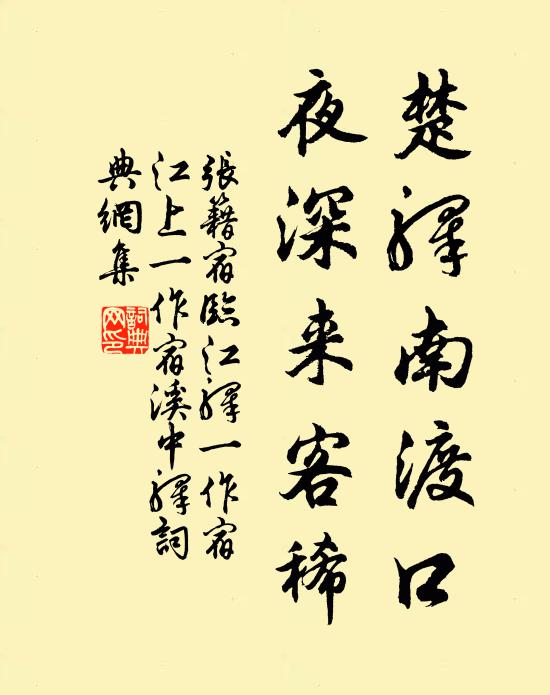 楚驛南渡口
夜深来客稀
張籍宿臨江驛一作宿
江上一作宿溪中驛詞
典網集
詞典
网印